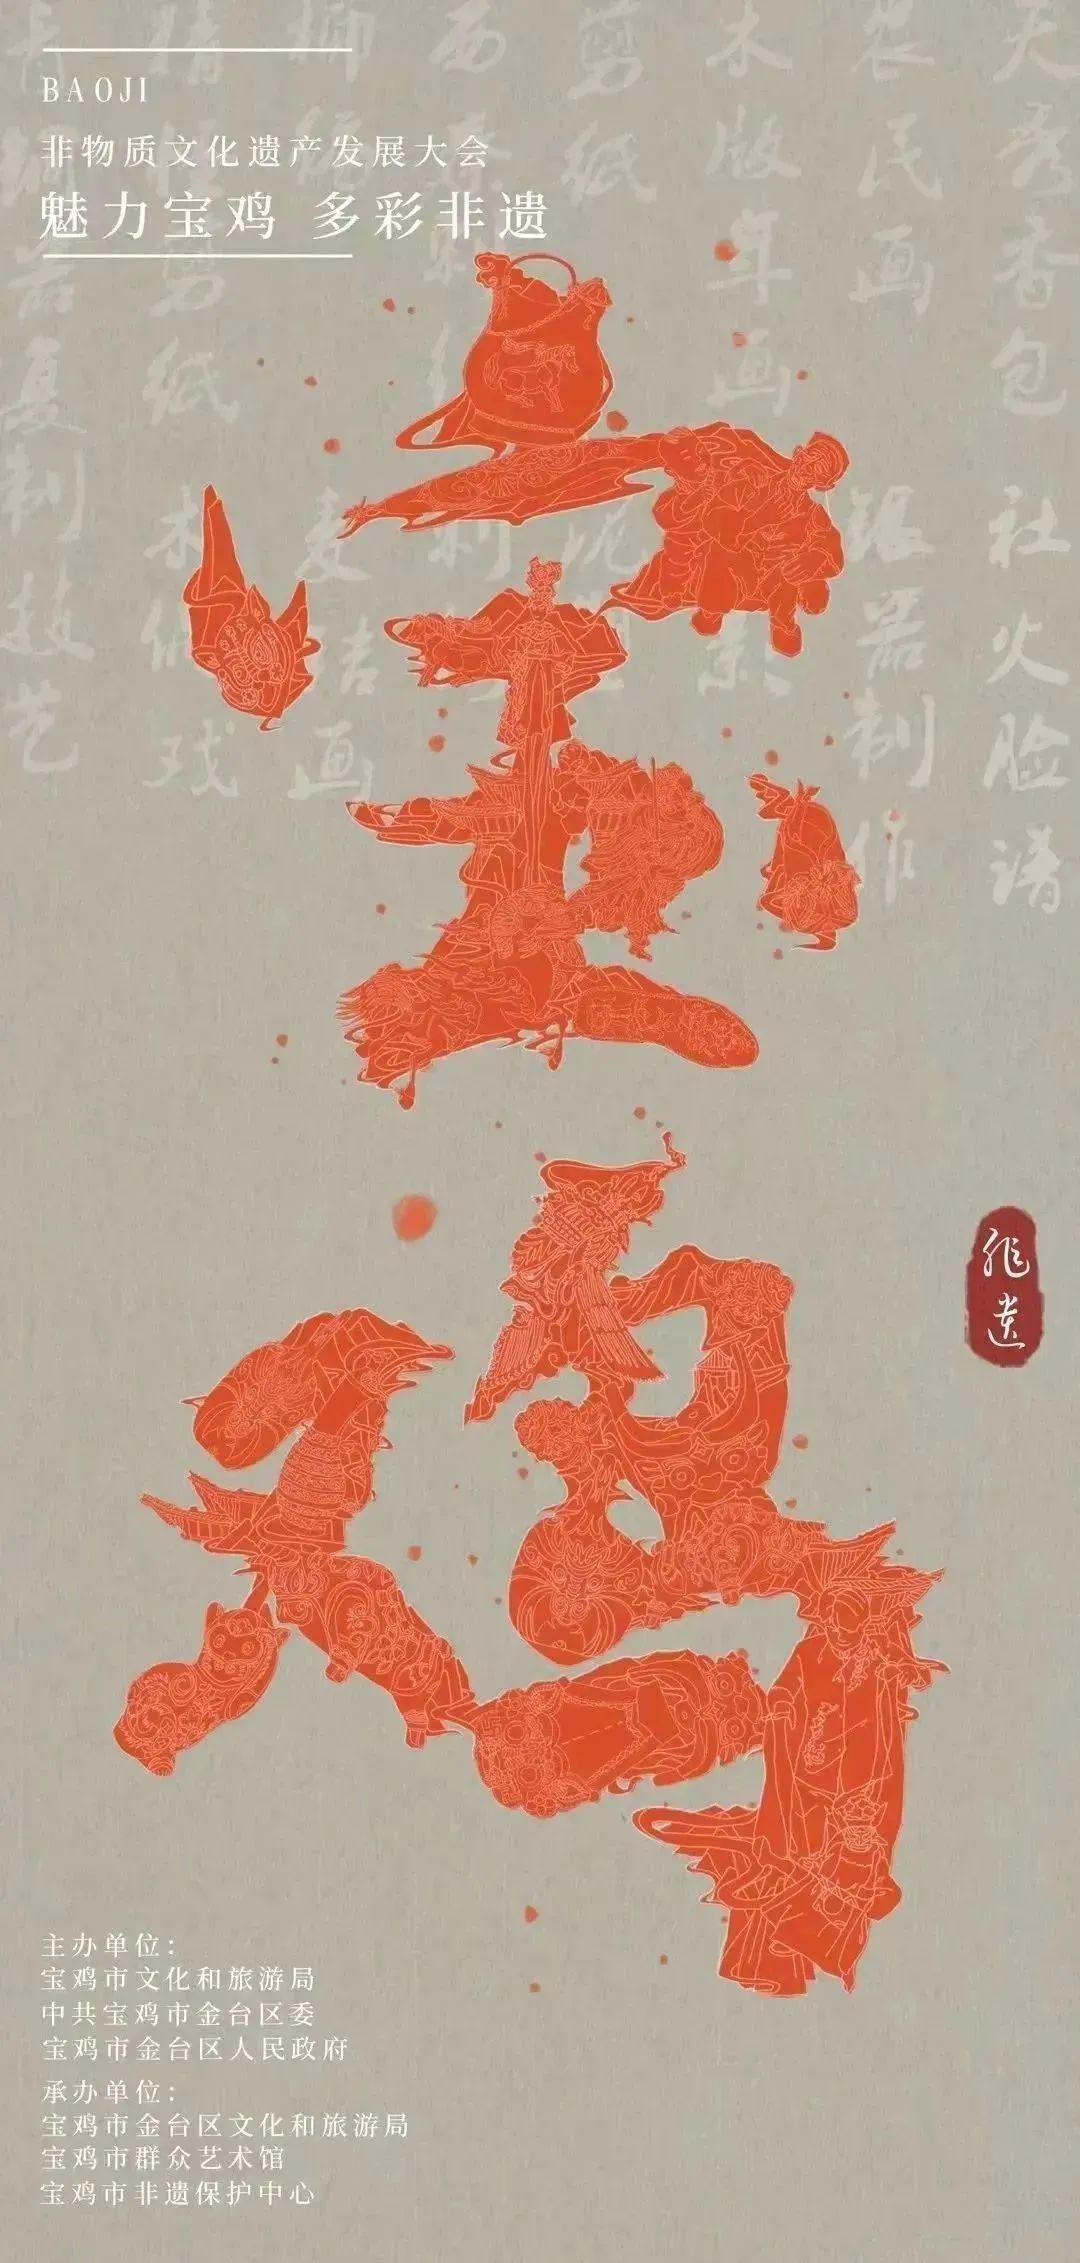 BAOJI
非物质文化遗产发展大会
魅力宝鸡 多彩非遗
天香包
社火脸谱
民画
银器制作
木版年画
剪纸
剪纸
木偶戏
麦秸画
复制技艺
宝鸡
非遗
主办单位：
宝鸡市文化和旅游局
中共宝鸡市金台区委
宝鸡市金台区人民政府
承办单位：
宝鸡市金台区文化和旅游局
宝鸡市群众艺术馆
宝鸡市非遗保护中心